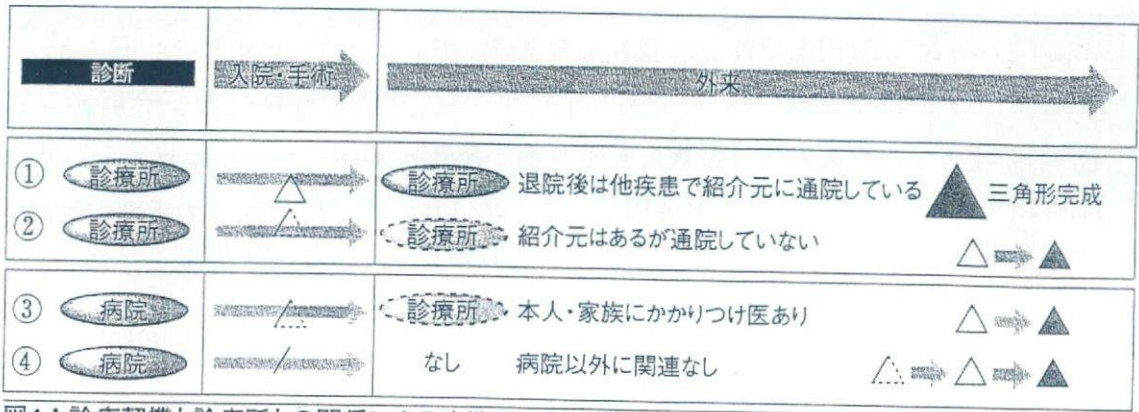 診断 入院・手術 外来
① 診療所 診療所 退院後は他疾患で紹介元に通院している 三角形完成
② 診療所 診療所 紹介元はあるが通院していない
③ 病院 診療所 本人・家族にかかりつけ医あり
④ 病院 なし 病院以外に関連なし